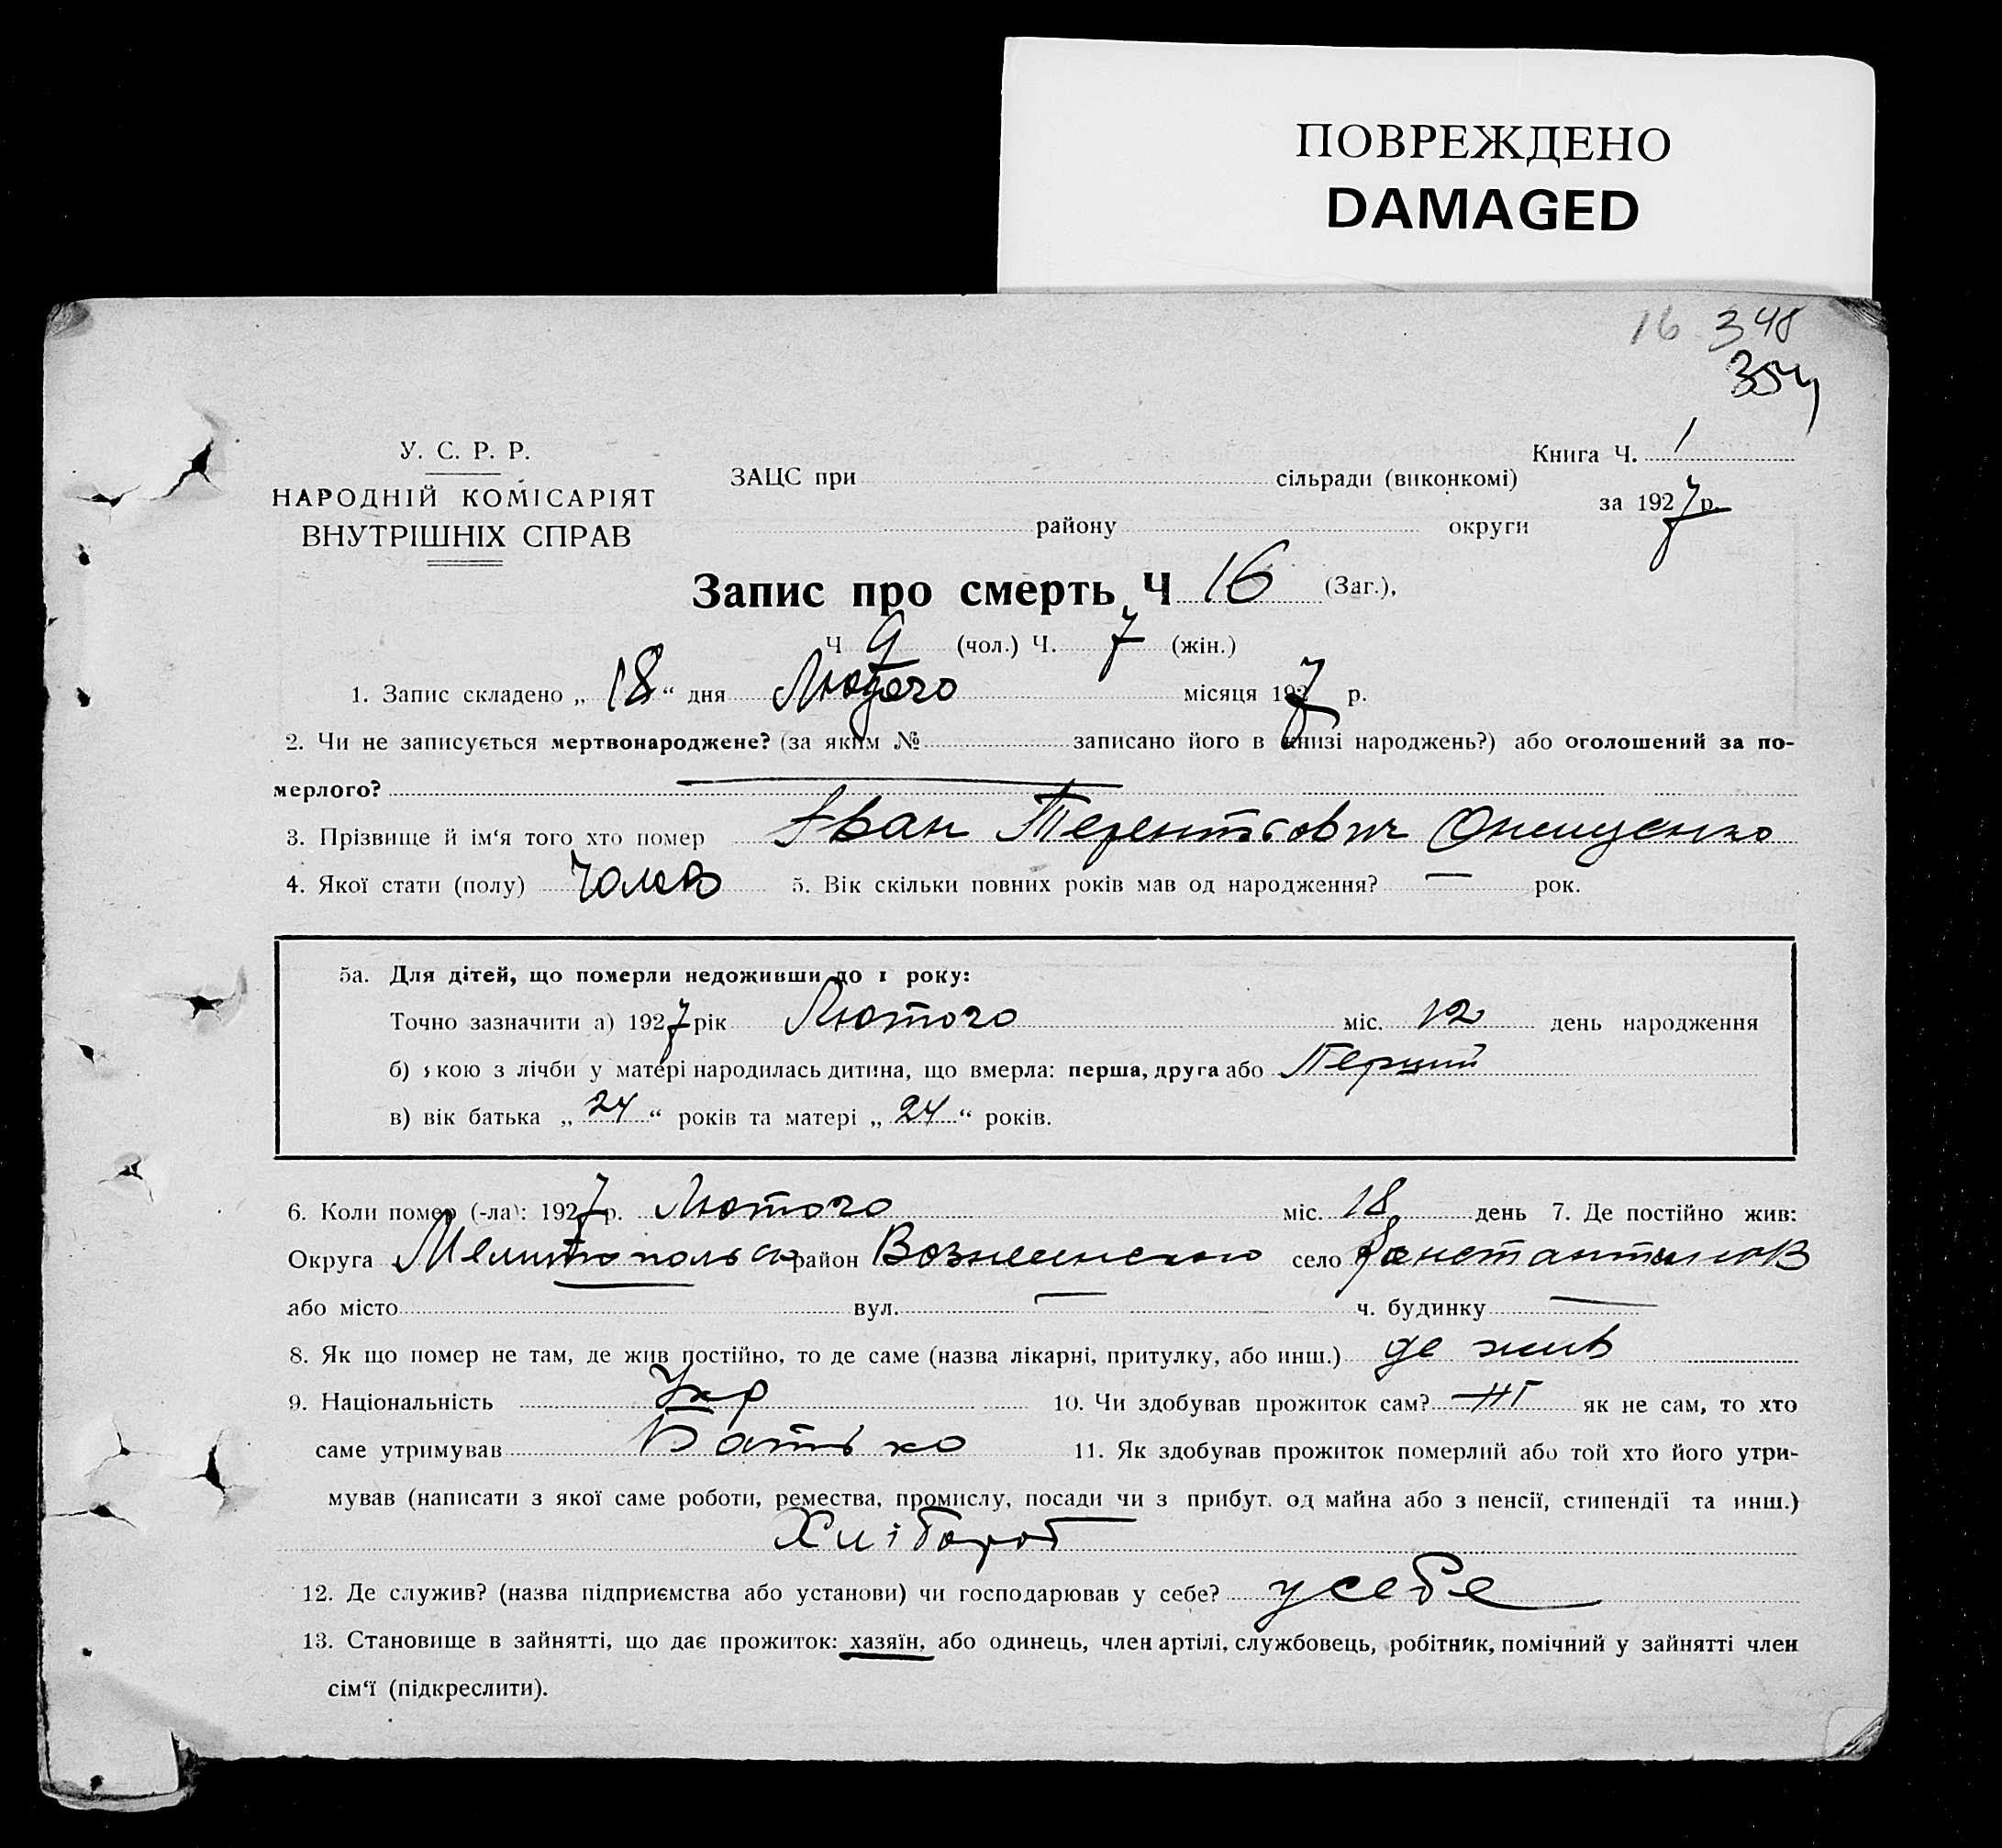 ПОВРЕЖДЕНО
DAMAGED
16 348
354
У. С. Р. Р.
НАРОДНІЙ КОМІСАРІЯТ
ВНУТРІШНІХ СПРАВ
ЗАЦС при сільради (виконкомі)
району округи
Книга Ч. 1
за 1927 р.
Запис про смерть Ч 16 (Заг.),
Ч 9 (чол.) Ч. 7 (жін.)
1. Запис складено „ 18 “ дня Лютого місяця 1927 р.
2. Чи не записується мертвонароджене? (за яким № записано його в книзі народжень?) або оголошений за по-
мерлого?
3. Прізвище й ім‘я того хто помер Іван Терентьович Онищенко
4. Якої стати (полу) Чолов 5. Вік скільки повних років мав од народження? — рок.
5а. Для дітей, що померли недоживши до 1 року:
Точно зазначити а) 1927 рік Лютого міс. 12 день народження
б) якою з лічби у матері народилась дитина, що вмерла: перша, друга або Перший
в) вік батька „ 24 “ років та матері „ 24 “ років.
6. Коли помер (-ла): 1927 р. Лютого міс. 18 день 7. Де постійно жив:
Округа Мелитопольск район Вознесенского село Константинов
або місто вул. — ч. будинку —
8. Як що помер не там, де жив постійно, то де саме (назва лікарні, притулку, або инш.) де жив
9. Національність Укр 10. Чи здобував прожиток сам? ні як не сам, то хто
саме утримував Батько 11. Як здобував прожиток померлий або той хто його утри-
мував (написати з якої саме роботи, ремества, промислу, посади чи з прибут. од майна або з пенсії, стипендії та инш.)
Хлібороб
12. Де служив? (назва підприємства або установи) чи господарював у себе? у себе
13. Становище в зайнятті, що дає прожиток: хазяїн, або одинець, член артілі, службовець, робітник, помічний у зайнятті член
сім‘ї (підкреслити).